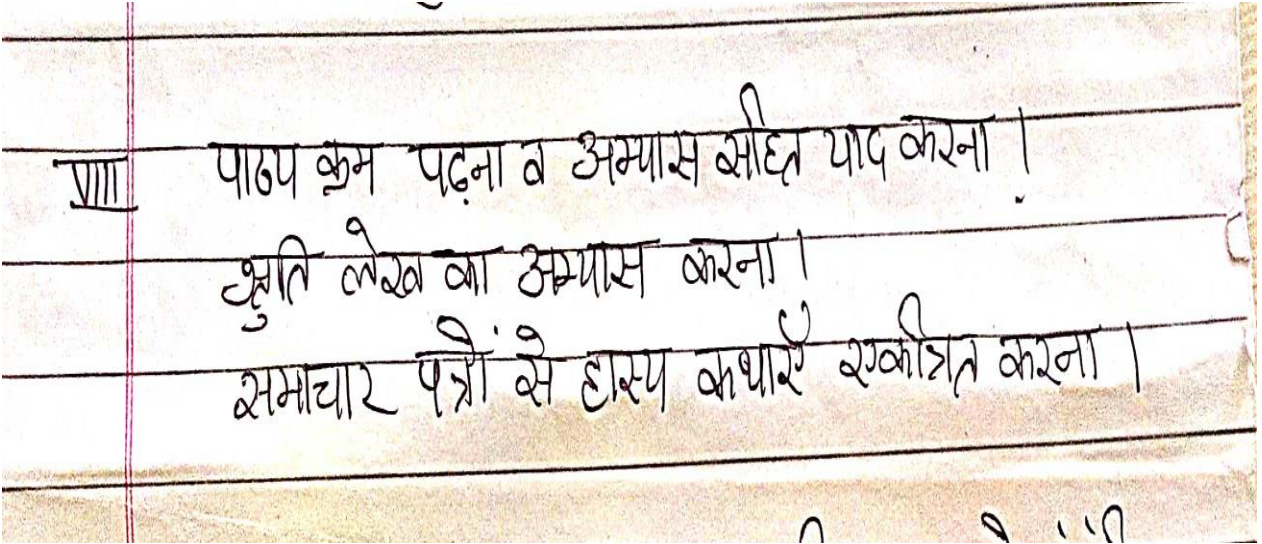 VIII पाठ्य क्रम पढ़ना व अभ्यास सहित याद करना ।
श्रुति लेख का अभ्यास करना ।
समाचार पत्रों से हास्य कथाएँ एकत्रित करना ।